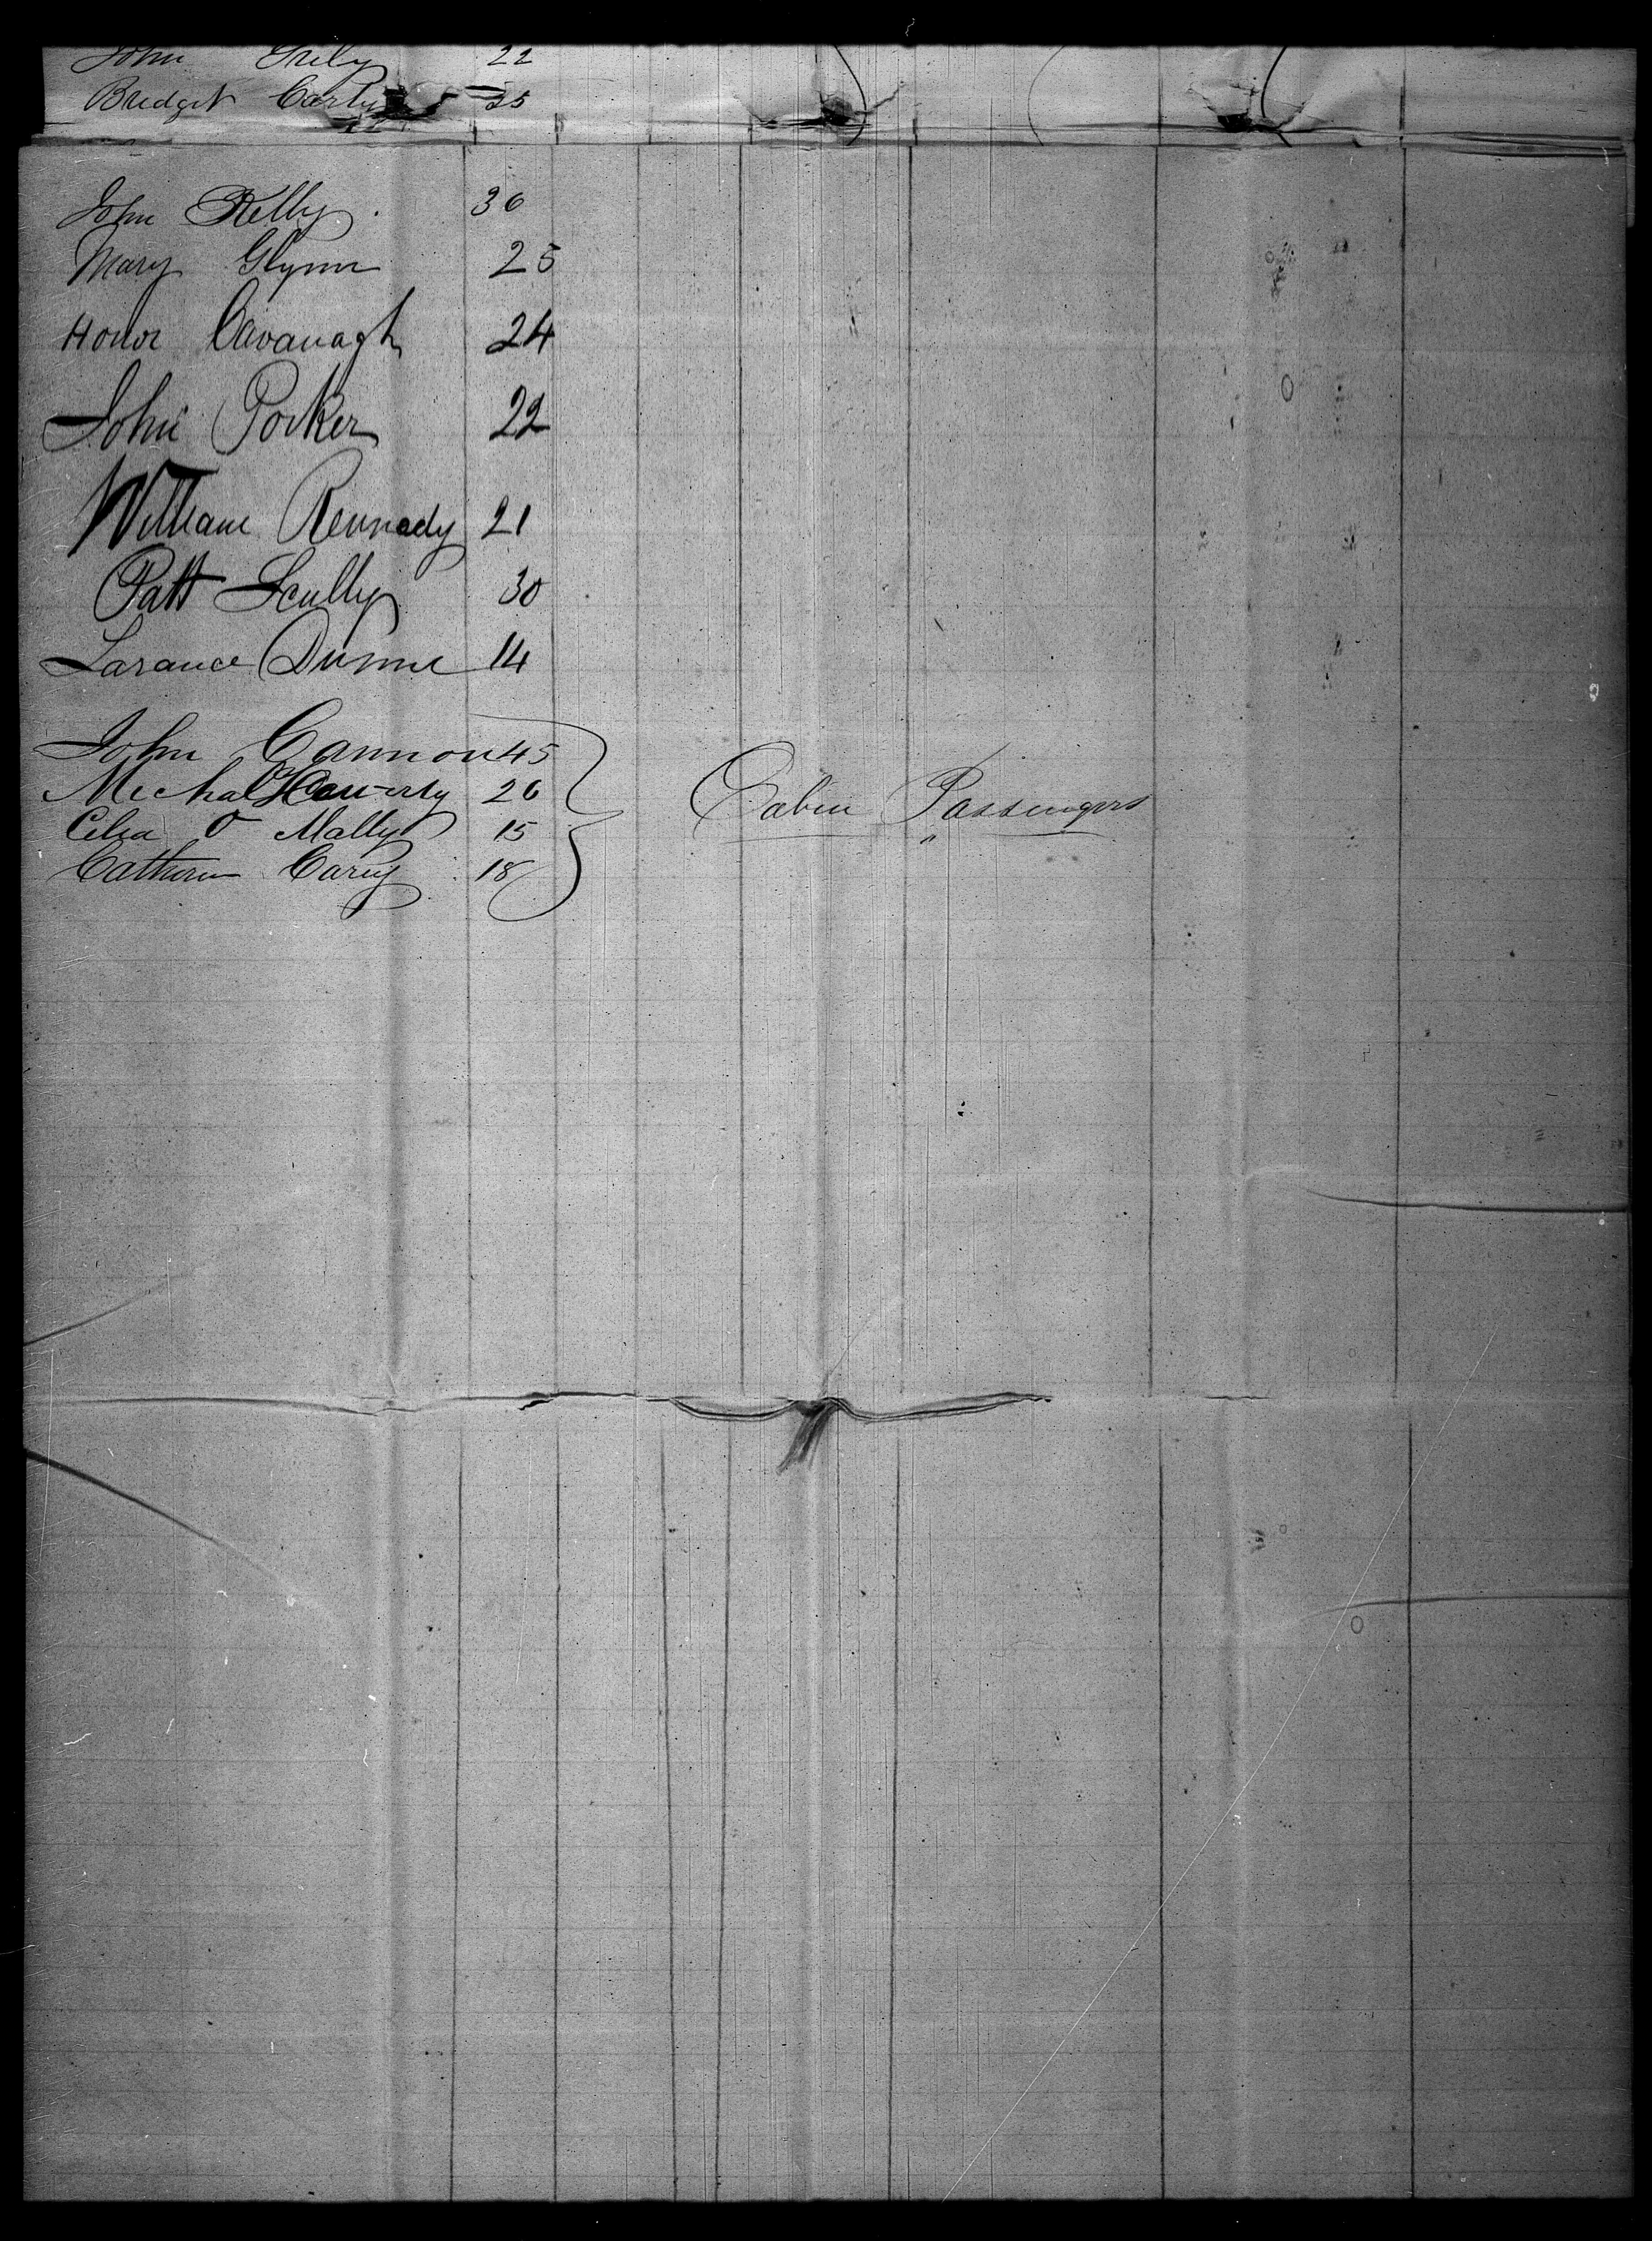 John 22
Bridget 25
John Kelly 36
Mary Glynn 25
Honor Cavanagh 24
John Porker 22
William Kennady 21
Patt Scully 30
Larance Dunne 14
John Cannon 45
Michal Haverty 26
Celia O Mally 15
Cabin Passengers
Cathrin Carey 18